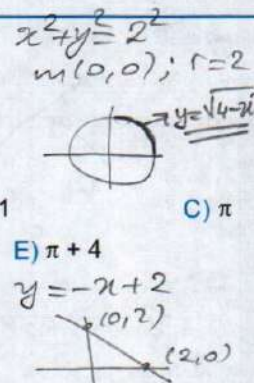 x²+y²=2²
m(0,0); r=2
y=√4-x²
1
C) π
E) π + 4
y=-x+2
(0,2)
(2,0)